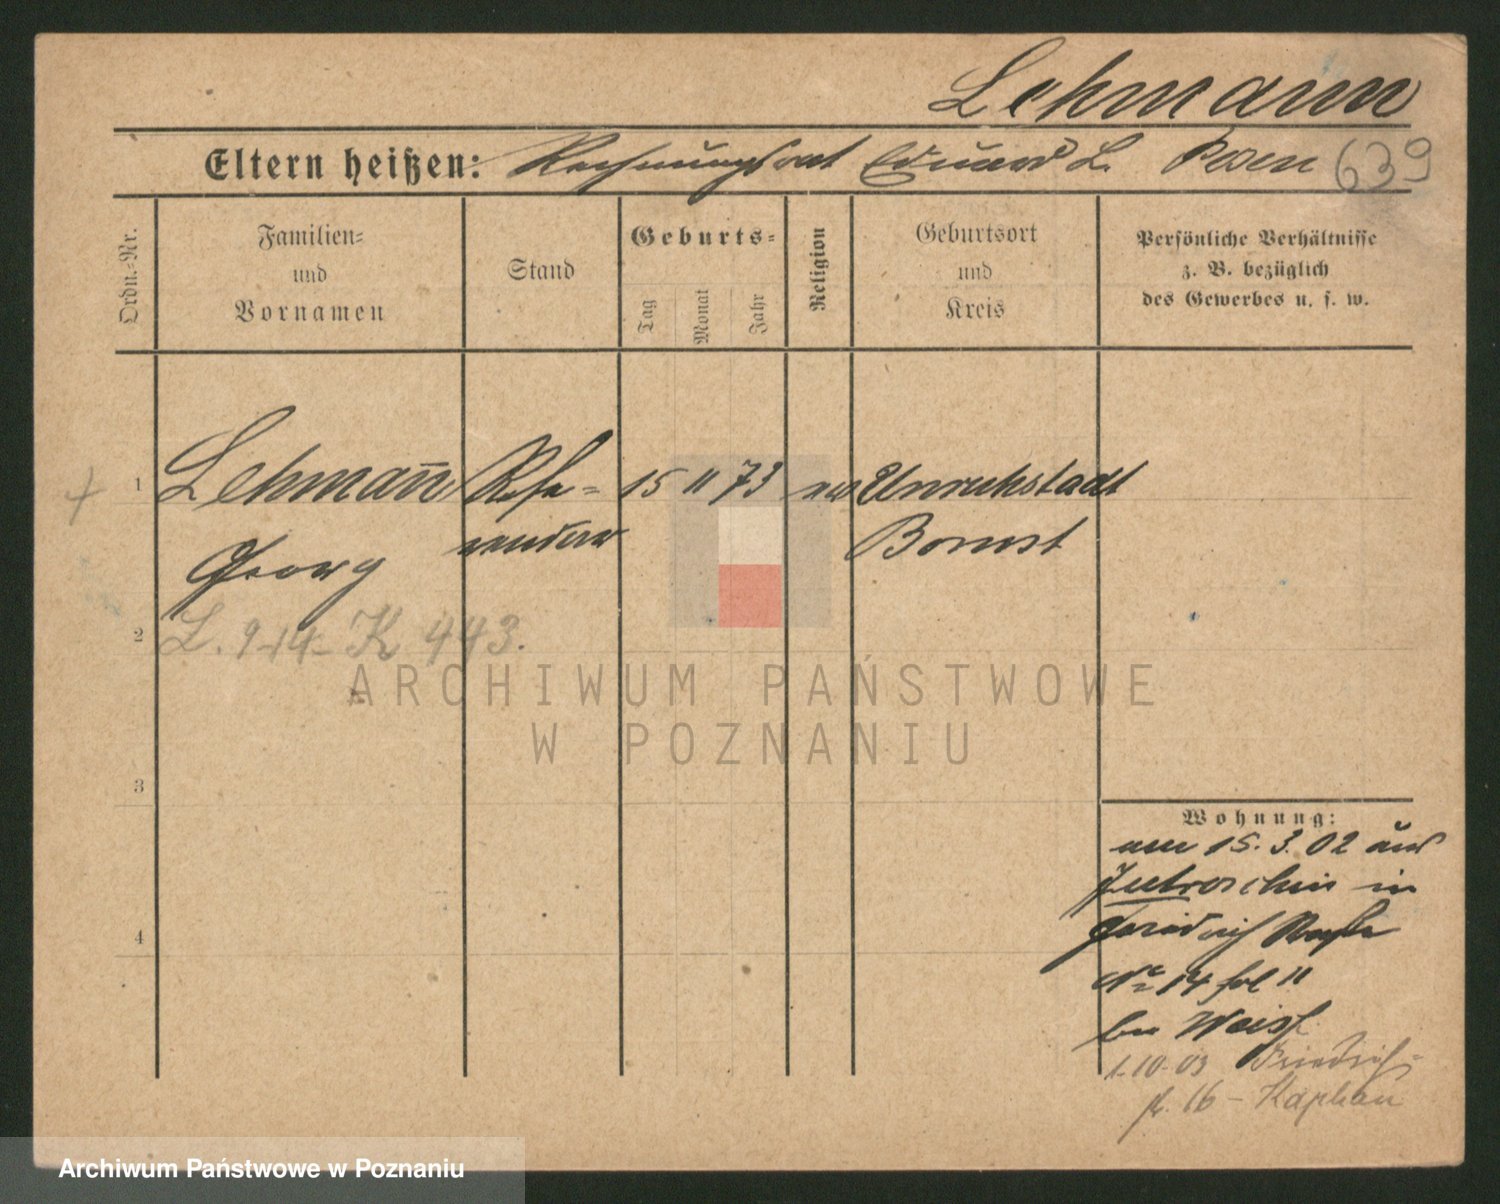 Lehmann
Eltern heißen: Rechnungsrat Eduard L. Posen 639
Ordn.-Nr.
Familien-
und
Vornamen
Stand
Geburts-
Tag
Monat
Jahr
Religion
Geburtsort
und
Kreis
Persönliche Verhältnisse
z. B. bezüglich
des Gewerbes u. s. w.
1 Lehman̅ Refe= 15 11 73 ev Unruhstadt
Georg rendar Bomst
2 L. 9-14- K 443.
3
4
Wohnung:
am 15.3.02 aus
Jutroschin in
Friedrich Straße
No 14 fol 11
bei Weiss
1-10-03 Friedrich-
str. 16 - Kaphan
ARCHIWUM PAŃSTWOWE
W POZNANIU
Archiwum Państwowe w Poznaniu